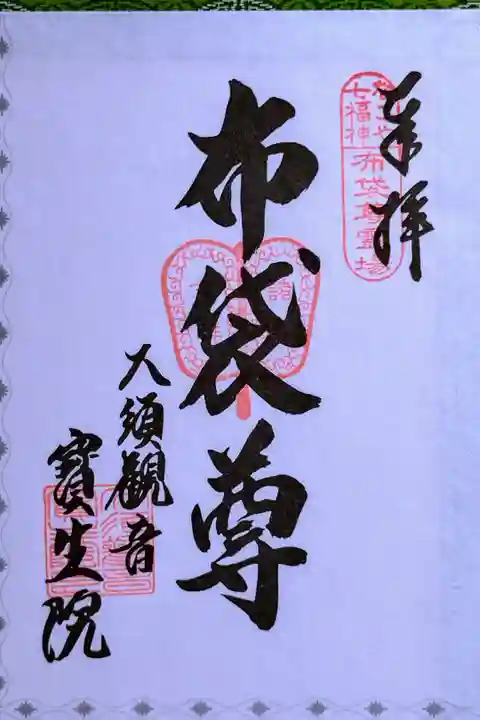 奉拝
七福神 布袋尊霊場
布袋尊
大須観音
寳生院